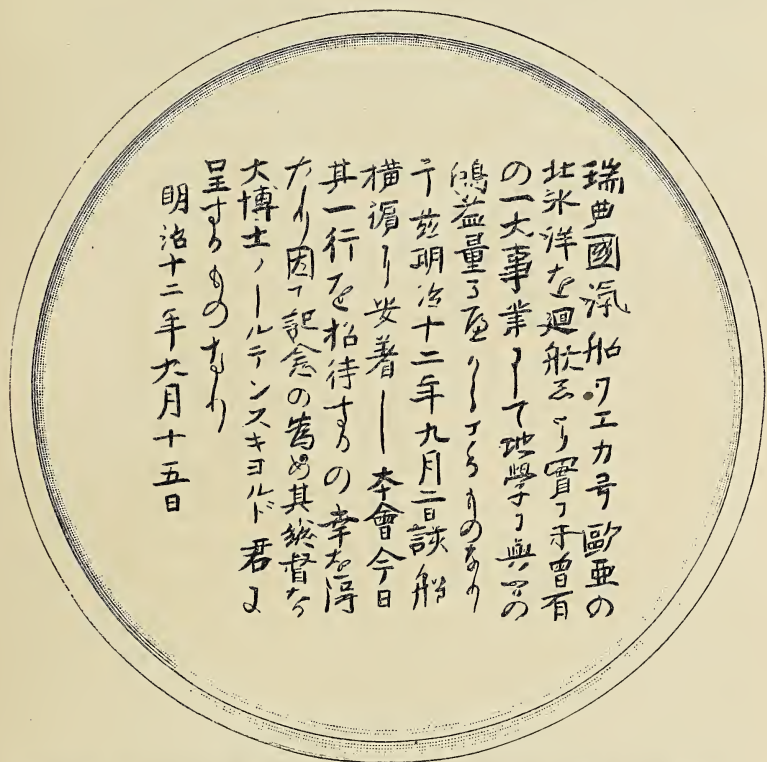 瑞典國滊船ウエカ号歐亜の
北氷洋を廻航するや實ニ未曽有
の一大事業にして地學に與ふるの
鴻益量る可からざるものなり
于茲明治十二年九月二日該船
横濱に安着し本會今日
其一行を招待するの幸を得
たり因て記念の為め其総督なる
大博士ノールデンスキヨルド君に
呈するものなり
明治十二年九月十五日